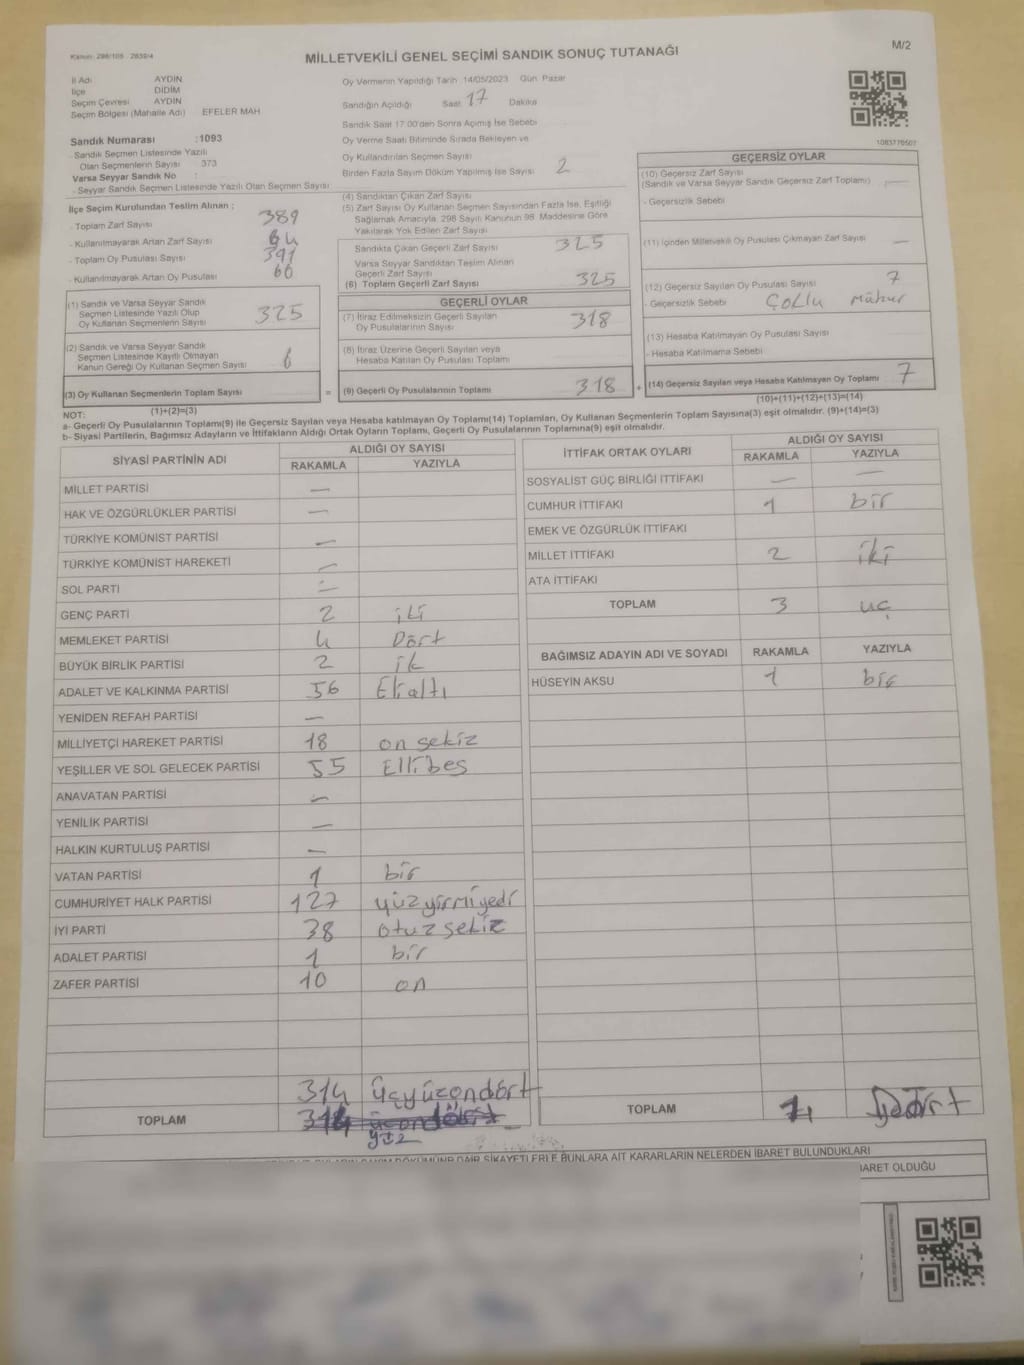 Kanun: 298/105 2839/4
MİLLETVEKİLİ GENEL SEÇİMİ SANDIK SONUÇ TUTANAĞI
M/2
İl Adı AYDIN
İlçe DİDİM
Seçim Çevresi AYDIN
Seçim Bölgesi (Mahalle Adı) EFELER MAH.
Sandık Numarası :1093
- Sandık Seçmen Listesinde Yazılı
Olan Seçmenlerin Sayısı 373
Varsa Seyyar Sandık No :
- Seyyar Sandık Seçmen Listesinde Yazılı Olan Seçmen Sayısı:
İlçe Seçim Kurulundan Teslim Alınan ;
- Toplam Zarf Sayısı 389
- Kullanılmayarak Artan Zarf Sayısı 64
- Toplam Oy Pusulası Sayısı 391
- Kullanılmayarak Artan Oy Pusulası 66
(1) Sandık ve Varsa Seyyar Sandık
Seçmen Listesinde Yazılı Olup
Oy Kullanan Seçmenlerin Sayısı 325
(2) Sandık ve Varsa Seyyar Sandık
Seçmen Listesinde Kayıtlı Olmayan
Kanun Gereği Oy Kullanan Seçmen Sayısı
(3) Oy Kullanan Seçmenlerin Toplam Sayısı =
(1)+(2)=(3)
Oy Vermenin Yapıldığı Tarih 14/05/2023 Gün Pazar
Sandığın Açıldığı Saat 17 Dakika
Sandık Saat 17:00'den Sonra Açılmış İse Sebebi
Oy Verme Saati Bitiminde Sırada Bekleyen ve
Oy Kullandırılan Seçmen Sayısı
Birden Fazla Sayım Döküm Yapılmış İse Sayısı 2
(4) Sandıktan Çıkan Zarf Sayısı
(5) Zarf Sayısı Oy Kullanan Seçmen Sayısından Fazla İse, Eşitliği
Sağlamak Amacıyla, 298 Sayılı Kanunun 98. Maddesine Göre
Yakılarak Yok Edilen Zarf Sayısı
Sandıkta Çıkan Geçerli Zarf Sayısı 325
Varsa Seyyar Sandıktan Teslim Alınan
Geçerli Zarf Sayısı
(6) Toplam Geçerli Zarf Sayısı 325
GEÇERLİ OYLAR
(7) İtiraz Edilmeksizin Geçerli Sayılan
Oy Pusulalarının Sayısı 318
(8) İtiraz Üzerine Geçerli Sayılan veya
Hesaba Katılan Oy Pusulası Toplamı
(9) Geçerli Oy Pusulalarının Toplamı 318 +
1083770507
GEÇERSİZ OYLAR
(10) Geçersiz Zarf Sayısı
(Sandık ve Varsa Seyyar Sandık Geçersiz Zarf Toplamı) —
- Geçersizlik Sebebi
(11) İçinden Milletvekili Oy Pusulası Çıkmayan Zarf Sayısı —
(12) Geçersiz Sayılan Oy Pusulası Sayısı 7
- Geçersizlik Sebebi Çoklu Mühür
(13) Hesaba Katılmayan Oy Pusulası Sayısı
- Hesaba Katılmama Sebebi
(14) Geçersiz Sayılan veya Hesaba Katılmayan Oy Toplamı 7
(10)+(11)+(12)+(13)=(14)
NOT:
a- Geçerli Oy Pusulalarının Toplamı(9) ile Geçersiz Sayılan veya Hesaba katılmayan Oy Toplamı(14) Toplamları, Oy Kullanan Seçmenlerin Toplam Sayısına(3) eşit olmalıdır. (9)+(14)=(3)
b- Siyasi Partilerin, Bağımsız Adayların ve İttifakların Aldığı Ortak Oyların Toplamı, Geçerli Oy Pusulalarının Toplamına(9) eşit olmalıdır.
SİYASİ PARTİNİN ADI ALDIĞI OY SAYISI
RAKAMLA YAZIYLA
MİLLET PARTİSİ —
HAK VE ÖZGÜRLÜKLER PARTİSİ —
TÜRKİYE KOMÜNİST PARTİSİ —
TÜRKİYE KOMÜNİST HAREKETİ —
SOL PARTİ —
GENÇ PARTİ 2 iki
MEMLEKET PARTİSİ 4 Dört
BÜYÜK BİRLİK PARTİSİ 2 ik
ADALET VE KALKINMA PARTİSİ 56 Elialtı
YENİDEN REFAH PARTİSİ —
MİLLİYETÇİ HAREKET PARTİSİ 18 on sekiz
YEŞİLLER VE SOL GELECEK PARTİSİ 55 Ellibeş
ANAVATAN PARTİSİ —
YENİLİK PARTİSİ —
HALKIN KURTULUŞ PARTİSİ —
VATAN PARTİSİ 1 bir
CUMHURİYET HALK PARTİSİ 127 yüzyirmiyedi
İYİ PARTİ 38 otuzsekiz
ADALET PARTİSİ 1 bir
ZAFER PARTİSİ 10 on
314 üçyüzondört
TOPLAM
yüz
İTTİFAK ORTAK OYLARI ALDIĞI OY SAYISI
RAKAMLA YAZIYLA
SOSYALİST GÜÇ BİRLİĞİ İTTİFAKI — —
CUMHUR İTTİFAKI 1 bir
EMEK VE ÖZGÜRLÜK İTTİFAKI
MİLLET İTTİFAKI 2 iki
ATA İTTİFAKI
TOPLAM 3 üç
BAĞIMSIZ ADAYIN ADI VE SOYADI RAKAMLA YAZIYLA
HÜSEYİN AKSU 1 bir
TOPLAM 4 Dört
DÖKÜMÜNE DAİR ŞİKAYETLERLE BUNLARA AİT KARARLARIN NELERDEN İBARET BULUNDUKLARI
İBARET OLDUĞU